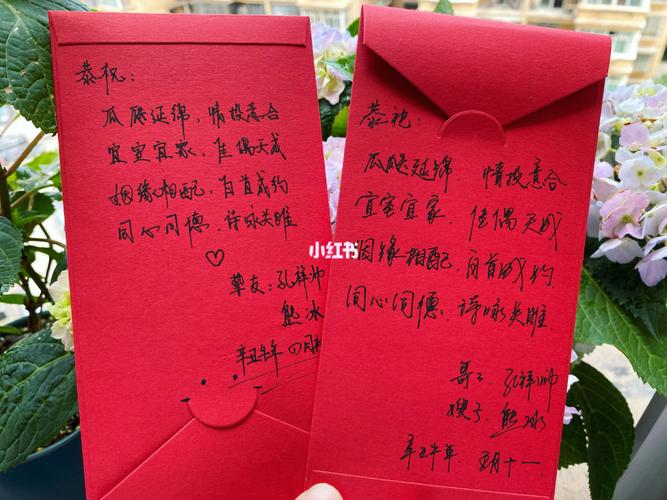 恭祝：
瓜瓞延绵，情投意合
宜室宜家，佳偶天成
姻缘相配，白首成约
同心同德，诗咏关雎
挚友：孔祥帅
熊冰
辛丑牛年 四月
小红书
恭祝：
瓜瓞延绵，情投意合
宜室宜家，佳偶天成
姻缘相配，白首成约
同心同德，诗咏关雎
哥哥：孔祥帅
嫂子：熊冰
辛丑牛年 五月十一